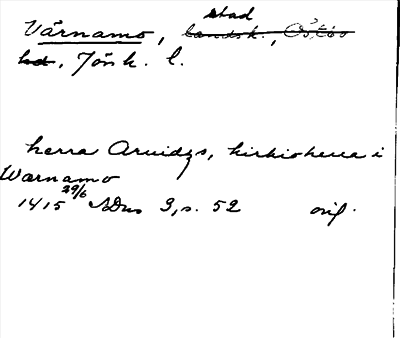 Värnamo, stad landsk., Östbo
hd, Jönk. l.
herra Aruidzs, kirkioherra i
Wærnamo
1415 29/6 SDns 3, s. 52 orig.